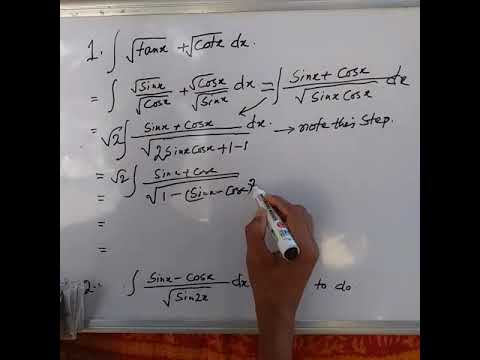 1. ∫ √tanx + √Cotx dx.
= ∫ √Sinx/√Cosx + √Cosx/√Sinx dx = ∫ Sinx + Cosx / √SinxCosx dx
= √2 ∫ Sinx + Cosx / √2SinxCosx + 1 - 1 dx. → note this Step.
= √2 ∫ Sinx + Cosx / √1 - (Sinx - Cosx)²
=
=
2. ∫ Sinx - Cosx / √Sin2x dx to do